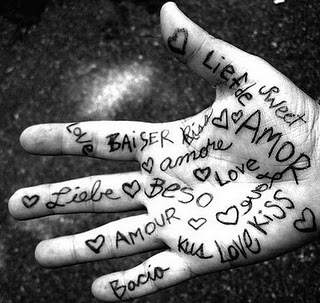 Liefde
sweet
Love
BAISER
Kiss
AMOR
amore
Love
Liebe
BESO
AMOUR
kus
Love
Kiss
Bacio